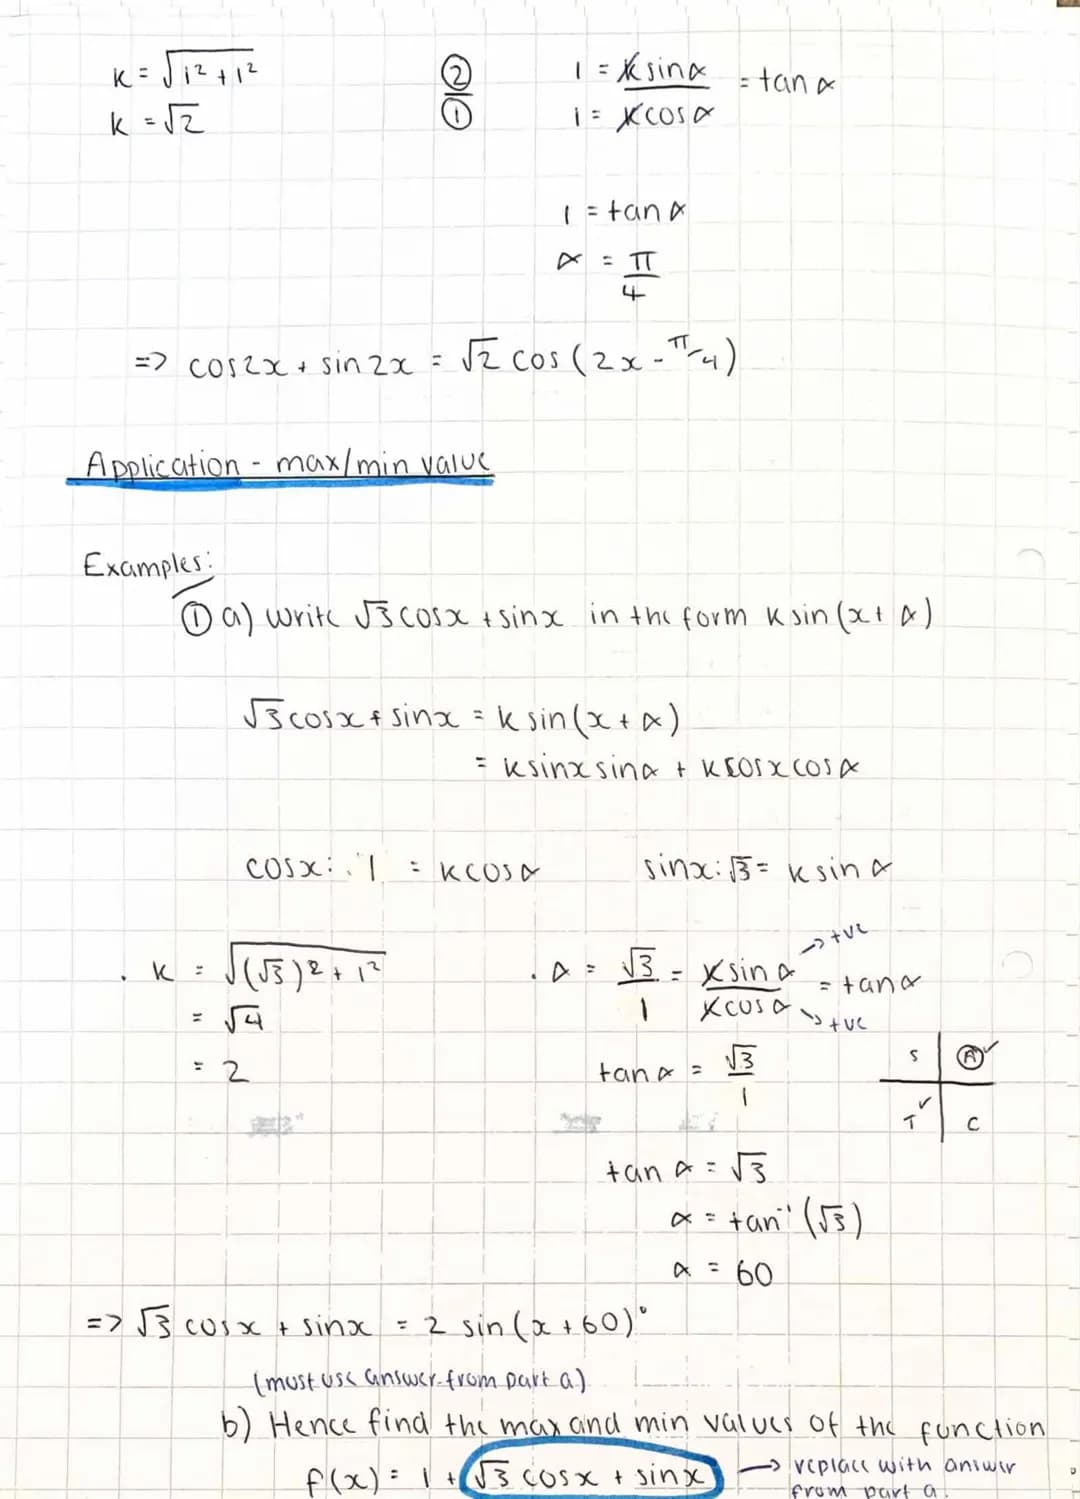 k = √1² + 1²
k = √2
② / ①
1 = k sin α / 1 = k cos α = tan α
1 = tan α
α = π/4
=> cos2x + sin2x = √2 cos (2x - π/4)
Application - max/min value
Examples:
① a) Write √3 cosx + sinx in the form k sin (x + α)
√3 cosx + sinx = k sin (x + α)
= ksinx sinα + kcosx cosα
cosx: 1 = kcosα
sinx: √3 = ksin α
k = √(√3)² + 1²
= √4
= 2
α = √3/1 = k sin α / k cos α = tan α
→ +ve
→ +ve
tan α = √3/1
S A ✓
T ✓ C
tan α = √3
α = tan⁻¹ (√3)
α = 60
=> √3 cosx + sinx = 2 sin (x + 60)°
(must use answer from part a)
b) Hence find the max and min values of the function
f(x) = 1 + √3 cosx + sinx → replace with answer
from part a.